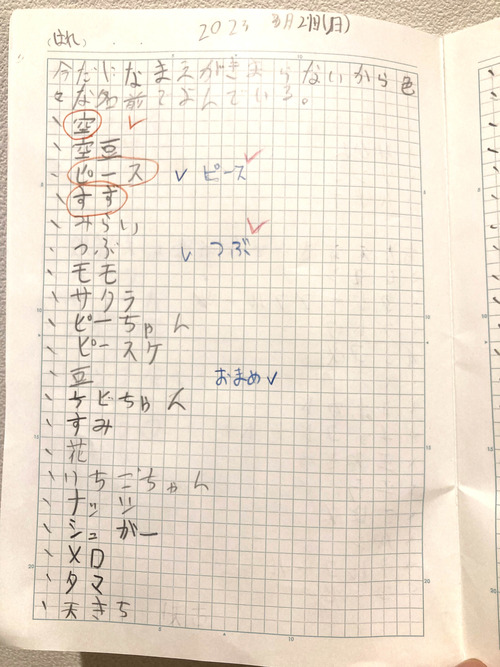 (はれ) 2023 3月27日(月)
今だになまえがきまらないから色
々な名前でよんでいる。
、空 ✓
、空豆
、ピース ✓ ピース ✓
、すず ✓
、みらい
、つぶ ✓ つぶ
、モモ
、サクラ
、ピーちゃん
、ピースケ
、豆 おまめ✓
、チビちゃん
、すみ
、花
、いちごちゃん
、ナッツ
、シュガー
、メロ
、タマ
、天きち